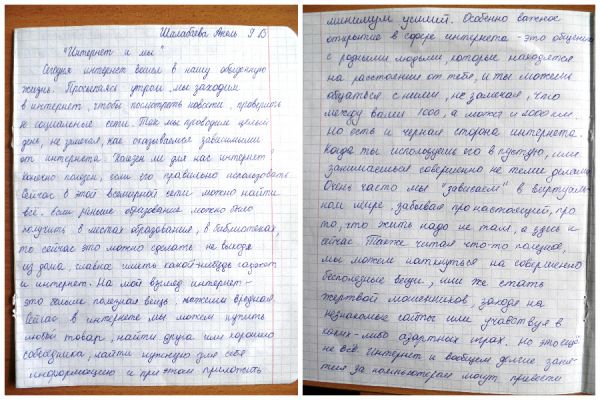 Шалабаева Асель 9 В
"Интернет и мы"
Сегодня интернет вошел в нашу обыденную
жизнь. Просыпаясь утром, мы заходим
в интернет, чтобы посмотреть новости, проверить
социальные сети. Так мы проводим целый
день, не замечая, как оказываемся зависимыми
от интернета. Полезен ли для нас интернет?
Конечно полезен, если его правильно использовать.
Сейчас в этой всемирной сети можно найти
всё. Если раньше образование можно было
получить в местах образования, в библиотеках,
то сейчас это можно сделать не выходя
из дома, главное иметь какой-нибудь гаджет
и интернет. На мой взгляд интернет-
это больше полезная вещь, нежели вредная.
Сейчас в интернете мы можем купить
любой товар, найти друга или хорошего
собеседника, найти нужную для себя
информацию и при этом приложить
минимум усилий. Особенно важное
открытие в сфере интернета - это общение
с родными людьми, которые находятся
на расстоянии от тебя, и ты можешь
общаться с ними, не замечая, что
между вами 1000, а может и 2000 км.
Но есть и черная сторона интернета.
Когда ты используешь его в пустую, или
занимаешься совершенно не теми делами.
Очень часто мы "зависаем" в виртуаль-
ном мире, забывая про настоящий, про
то, что жить надо не там, а здесь и
сейчас. Также читая что-то полезное,
мы можем наткнуться на совершенно
бесполезные вещи, или же стать
жертвой мошенников, заходя на
незнакомые сайты или участвуя в
каких-либо азартных играх. Но это ещё
не всё. Интернет и вообщем долгие заня-
тия за компьютером могут привести